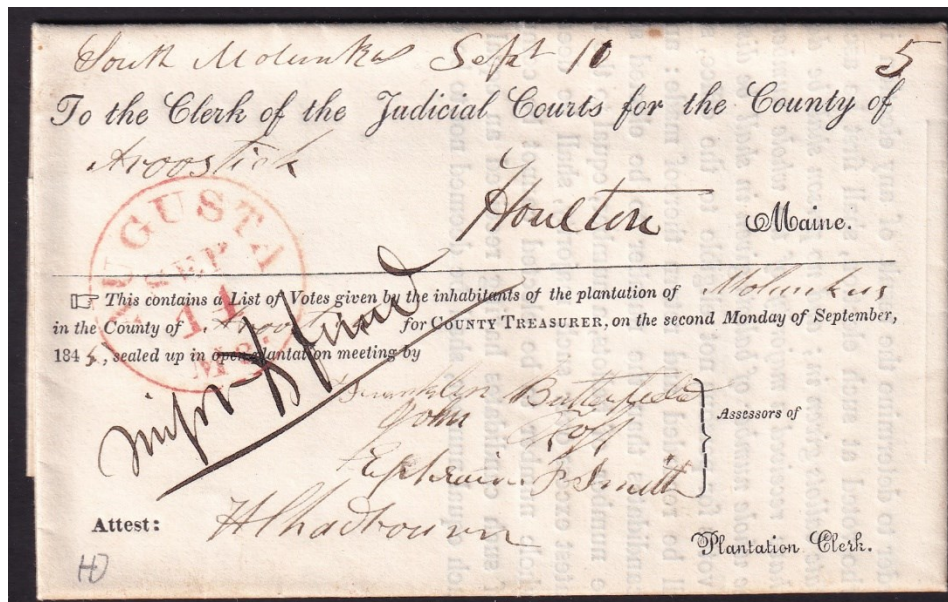 South Molunkus Sept 10 5
To the Clerk of the Judicial Courts for the County of
Aroostick
Houlton Maine.
AUGUSTA
SEP
14
MS.
☞ This contains a List of Votes given by the inhabitants of the plantation of Molunkus
in the County of Aroostick for COUNTY TREASURER, on the second Monday of September,
1845, sealed up in open plantation meeting by
Franklin Butterfield
John
Ephraim F Smith
Assessors of
Attest: H Chadbourn
Plantation Clerk.